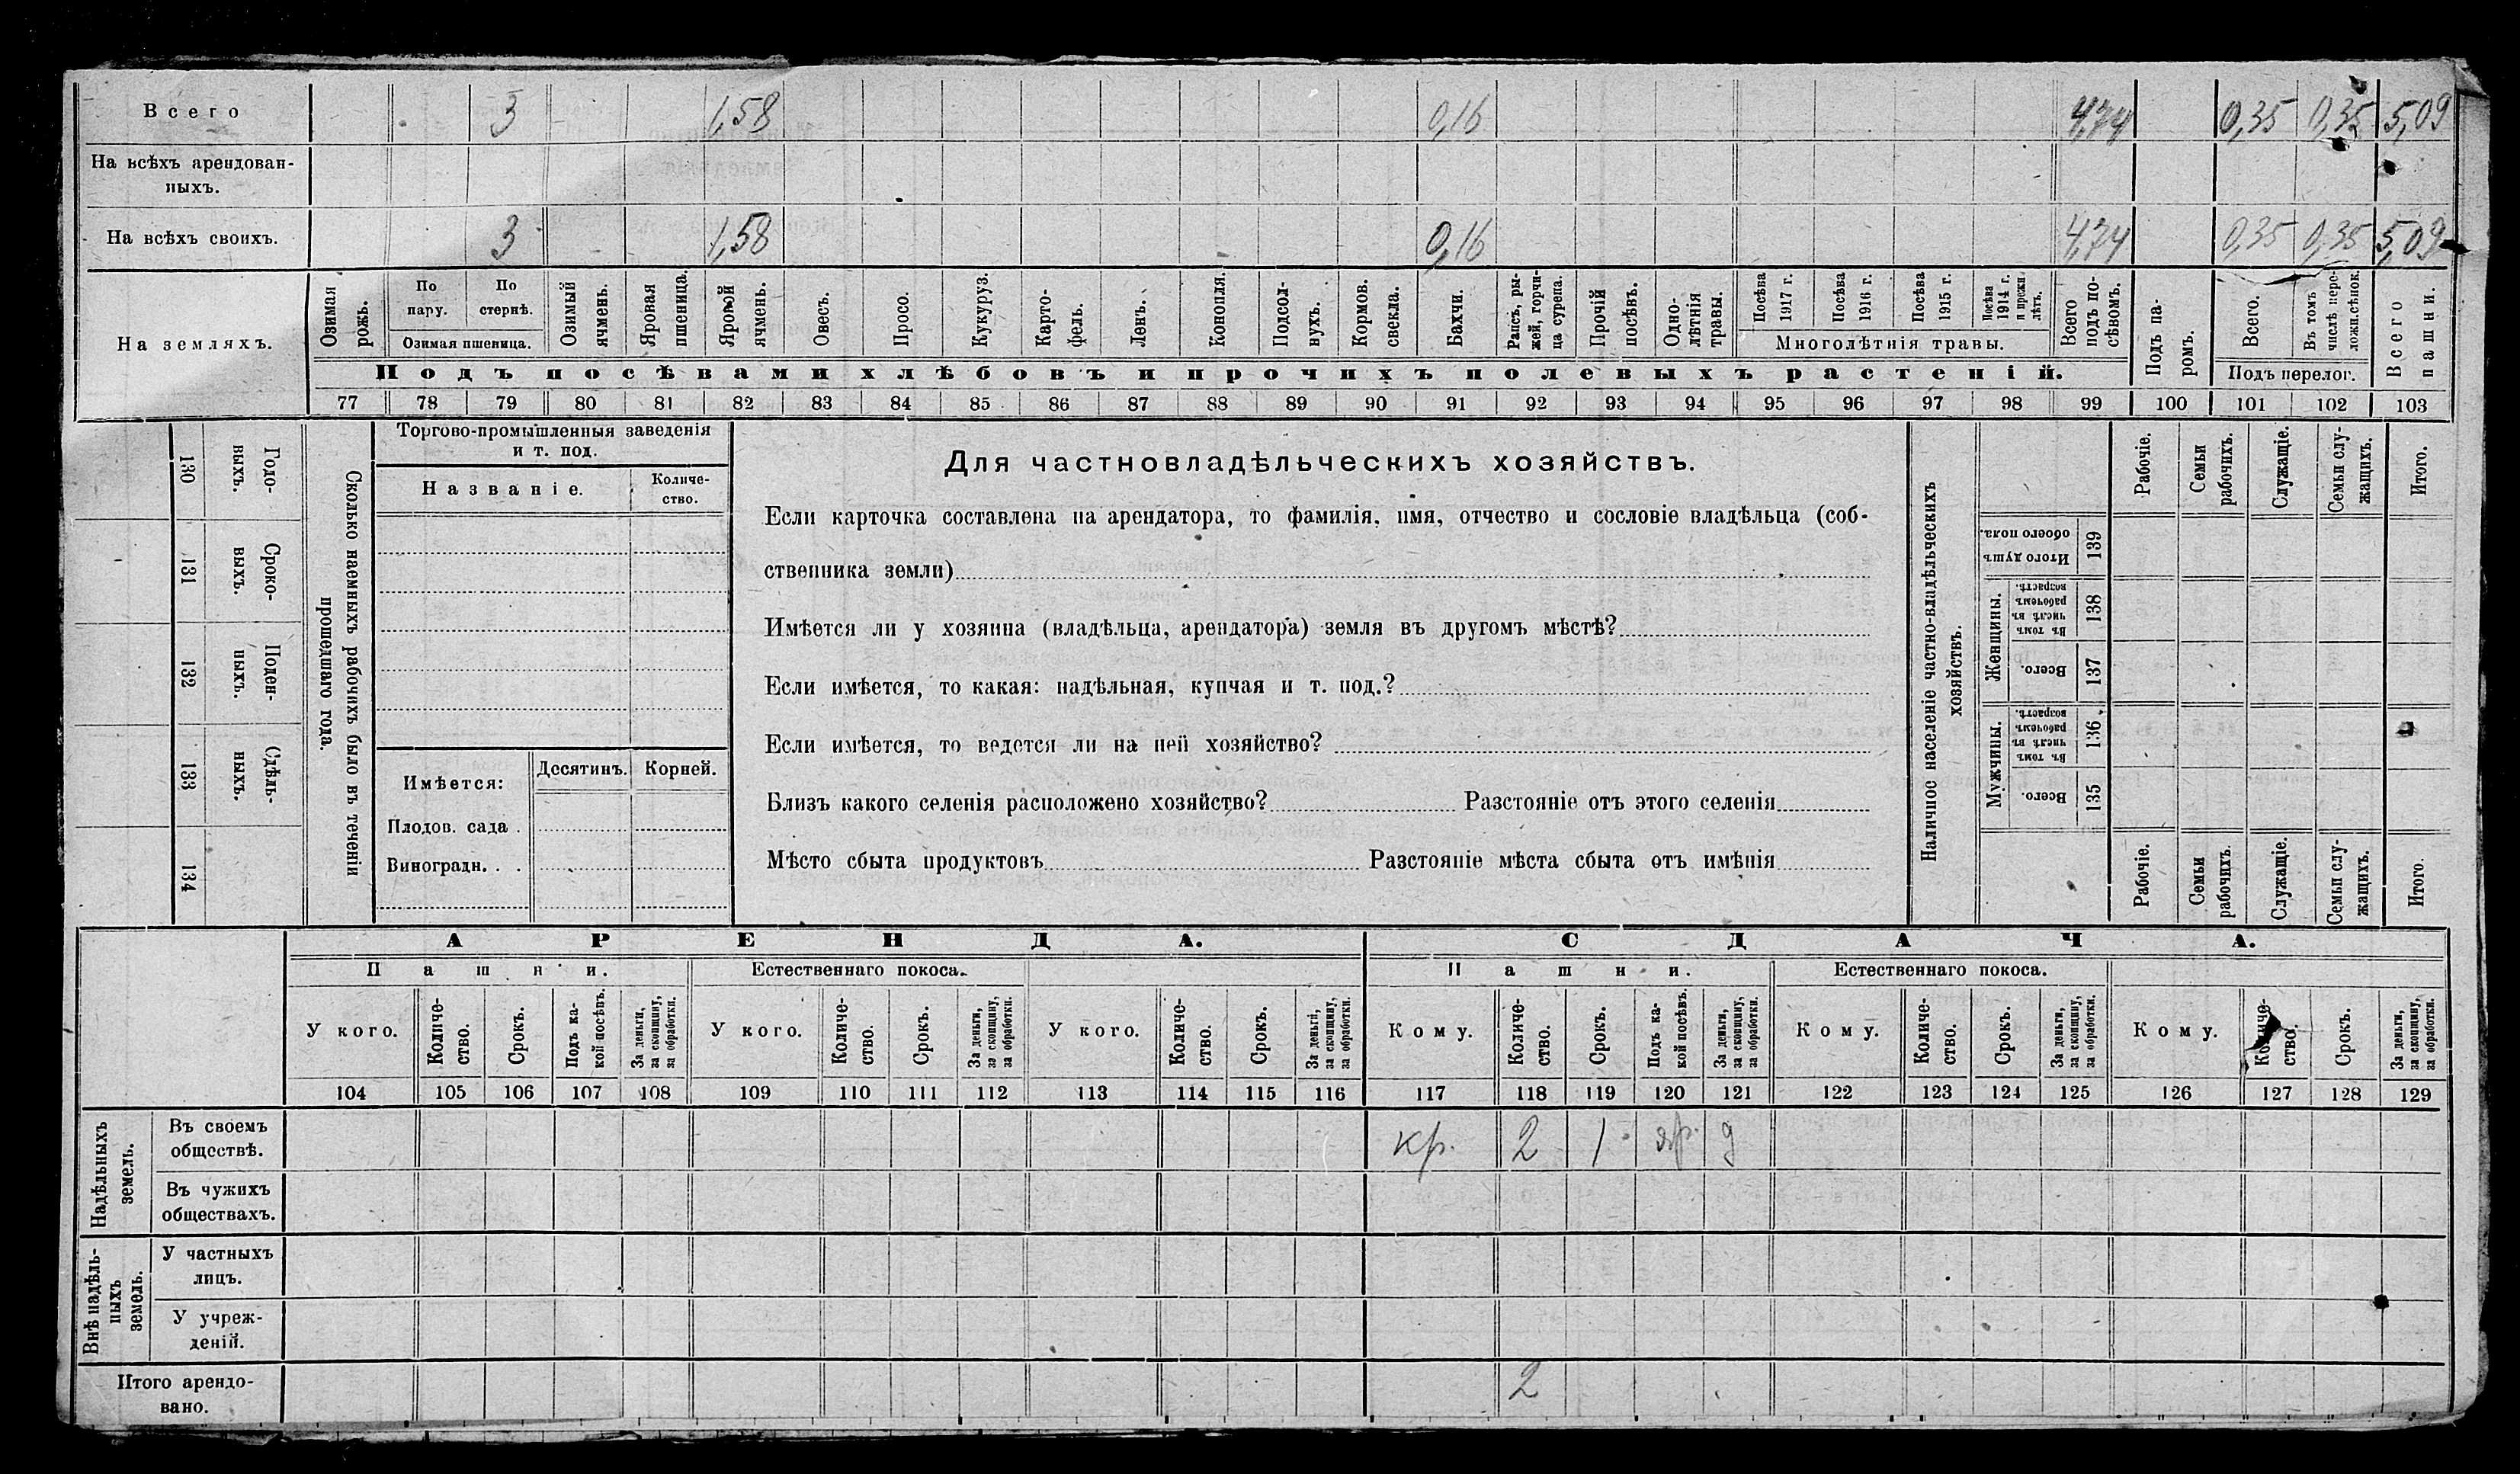 Всего 3 1,58 0,16 4,74 0,35 0,35 5,09
На всѣхъ арендован-
ныхъ.
На всѣхъ своихъ. 3 1,58 0,16 4,74 0,35 0,35 5,09
На земляхъ.
Озимая рожь.
По пару.
По стернѣ.
Озимая пшеница.
Озимый ячмень.
Яровая пшеница.
Яровой ячмень.
Овесъ.
Просо.
Кукуруз.
Карто-
фель.
Ленъ.
Конопля.
Подсол-
нухъ.
Кормов. свекла.
Бахчи.
Рапсъ, ры-
жей, горчи-
ца сурепа.
Прочій посѣвъ.
Одно-
лѣтнія травы.
Посѣва 1917 г.
Посѣва 1916 г.
Посѣва 1915 г.
Посѣва 1914 г. и прежн. лѣтъ.
Многолѣтнія травы.
Всего подъ по-
сѣвомъ.
Подъ па-
ромъ.
Всего.
Въ томъ числѣ пере-
ложн. сѣнок.
Подъ перелог.
Всего пашни.
Подъ посѣвами хлѣбовъ и прочихъ полевыхъ растеній.
77 78 79 80 81 82 83 84 85 86 87 88 89 90 91 92 93 94 95 96 97 98 99 100 101 102 103
130 Годо-
выхъ.
131 Сроко-
выхъ.
132 Поден-
ныхъ.
133 Сдѣль-
ныхъ.
134
Сколько наемныхъ рабочихъ было въ теченіи
прошедшаго года.
Торгово-промышленныя заведенія
и т. под.
Названіе.
Количе-
ство.
Имѣется: Десятинъ. Корней.
Плодов. сада .
Виноградн. . .
Для частновладѣльческихъ хозяйствъ.
Если карточка составлена на арендатора, то фамилія, имя, отчество и сословіе владѣльца (соб-
ственника земли)
Имѣется ли у хозяина (владѣльца, арендатора) земля въ другомъ мѣстѣ?
Если имѣется, то какая: надѣльная, купчая и т. под.?
Если имѣется, то ведется ли на ней хозяйство?
Близъ какого селенія расположено хозяйство? Разстояніе отъ этого селенія
Мѣсто сбыта продуктовъ Разстояніе мѣста сбыта отъ имѣнія
Наличное населеніе частно-владѣльческихъ
хозяйствъ.
Рабочіе.
Семьи рабочихъ.
Служащіе.
Семьи слу-
жащихъ.
Итого.
Итого душъ обоего пола. 139
Женщины.
Въ томъ числѣ въ рабочемъ возрастѣ. 138
Всего. 137
Мужчины.
Въ томъ числѣ въ рабочемъ возрастѣ. 136
Всего. 135
Рабочіе.
Семьи рабочихъ.
Служащіе.
Семьи слу-
жащихъ.
Итого.
АРЕНДА. СДАЧА.
Пашни. Естественнаго покоса. Пашни. Естественнаго покоса.
У кого.
Количе-
ство.
Срокъ.
Подъ ка-
кой посѣвъ.
За деньги, за скопщину, за обработки.
У кого.
Количе-
ство.
Срокъ.
За деньги, за скопщину, за обработки.
У кого.
Количе-
ство.
Срокъ.
За деньги, за скопщину, за обработки.
Кому.
Количе-
ство.
Срокъ.
Подъ ка-
кой посѣвъ.
За деньги, за скопщину, за обработки.
Кому.
Количе-
ство.
Срокъ.
За деньги, за скопщину, за обработки.
Кому.
Количе-
ство.
Срокъ.
За деньги, за скопщину, за обработки.
104 105 106 107 108 109 110 111 112 113 114 115 116 117 118 119 120 121 122 123 124 125 126 127 128 129
Надѣльныхъ земель.
Въ своемъ
обществѣ. кр. 2 1 яр. д
Въ чужихъ
обществахъ.
Внѣ надѣль-
ныхъ земель.
У частныхъ
лицъ.
У учреж-
деній.
Итого арендо-
вано. 2